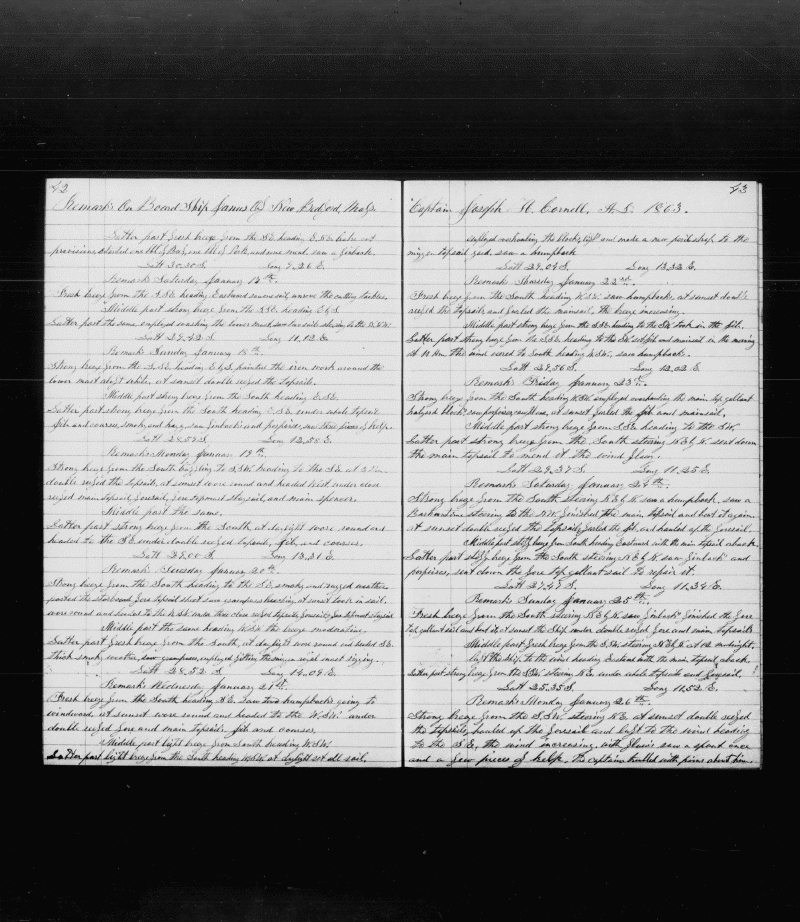 42
Remarks On Board Ship James Of New Bedford, Mass.
Latter part fresh breeze from the S.E. heading E.N.E. broke out
provisions, started one bbl of Beef, one bbl of Pork, and one meal, saw a finback.
Latt 30.30 S Long 9.26 E.
Remarks Saturday January 17th.
Fresh breeze from the S.S.E. heading Eastward
Middle part strong breeze from the S.S.E. heading E by S.
Latter part the same employed washing the lower mast, saw two sails steering to the W.N.W.
Latt 29.42 S Long 11.12 E.
Remarks Sunday January 18th.
Strong breeze from the S.S.E. heading E by S. painted the iron work around the
lower mast white, at sunset double reefed the topsails.
Middle part strong breeze from the South heading E.S.E.
Latter part strong breeze from the South heading E.S.E. under whole topsails
jib and courses, smoky and hazy, saw finbacks and porpoises, saw three pieces of kelp.
Latt 28.59 S Long 12.58 E.
Remarks Monday January 19th.
Strong breeze from the South to S.S.W. heading to the S.E. at
double reefed the topsails, at sunset wore round and headed west under close
reefed main topsail, foresail, fore topmast staysail, and main spencer.
Middle part the same.
Latter part strong breeze from the South at daylight wore round and
headed to the S.E. under double reefed topsails, jib, and courses.
Latt 29.00 S Long 13.31 E.
Remarks Tuesday January 20th.
Strong breeze from the South heading to the S.E. smoky and rugged weather
parted the starboard fore topsail sheet at sunset took in sail,
wore round and headed to the W.S.W. under three close reefed topsails, foresail, fore topmast staysail
Middle part the same heading W.S.W. the breeze moderating.
Latter part fresh breeze from the South, at daylight wore round and headed S.E.
thick smoky weather, saw grampuses, employed fitting the mizen royal mast rigging.
Latt 28.52 S Long 14.09 E.
Remarks Wednesday January 21st.
Fresh breeze from the South heading S.E. saw two humpbacks going to
windward, at sunset wore round and headed to the W.S.W. under
double reefed fore and main topsails jib and courses.
Middle part light breeze from South heading W.S.W.
Latter part light breeze from the South heading W.S.W. at daylight set all sail,
43
Captain Joseph H. Cornell, A.D. 1863.
employed overhauling the blocks, and made a new parrel strap to the
mizzen topsail yard, saw a humpback
Latt 29.04 S Long 13.32 E.
Remarks Thursday January 22nd.
Fresh breeze from the South heading W.S.W. saw humpbacks, at sunset double
reefed the topsails and furled the mainsail, the breeze increasing.
Middle part strong breeze from the S.S.E. heading to the S.W. took in the jib.
Latter part strong breeze from the S.S.E. heading to the S.W. set jib and mainsail in the morning
at 11 Am. the wind veered to South heading W.S.W., saw humpbacks.
Latt 29.56 S Long 12.02 E.
Remarks Friday January 23rd.
Strong breeze from the South heading W.S.W. employed overhauling the main top gallant
halyard block, saw porpoises, at sunset furled the jib and mainsail.
Middle part strong breeze from S.S.E. heading to the S.W.
Latter part strong breeze from the South steering N.E by N. sent down
the main topsail to mend it the wind
Latt 29.37 S Long 11.25 E.
Remarks Saturday January 24th.
Strong breeze from the South steering N.E by N. saw a humpback, saw a
Barkentine steering to the N.W. finished the main topsail and bent it again
at sunset double reefed the topsails, furled the jib, and hauled up the foresail.
Middle part stiff breeze from South heading Eastward with the main topsail aback.
Latter part stiff breeze from the South steering N.E by N. saw finbacks and
porpoises, sent down the fore top gallant sail to repair it.
Latt 27.47 S Long 11.34 E.
Remarks Sunday January 25th.
Fresh breeze from the South steering N.E by N. saw finbacks finished the fore
top gallant sail and bent it at sunset the ship under double reefed fore and main topsails
Middle part fresh breeze from the S.S.W. steering N.E by N. at 12 midnight,
luft the ship to the wind heading Eastward with the main topsail aback.
Latter part strong breeze from the S.S.W. steering N.E. under whole topsails and foresail.
Latt 25.35 S. Long 11.52 E.
Remarks Monday January 26th.
Strong breeze from the S.S.W. steering N.E. at sunset double reefed
the topsails, hauled up the foresail and luft to the wind heading
to the S.E. the wind increasing, saw a spout once
and a few pieces of kelp, the captain troubled with pains about him.